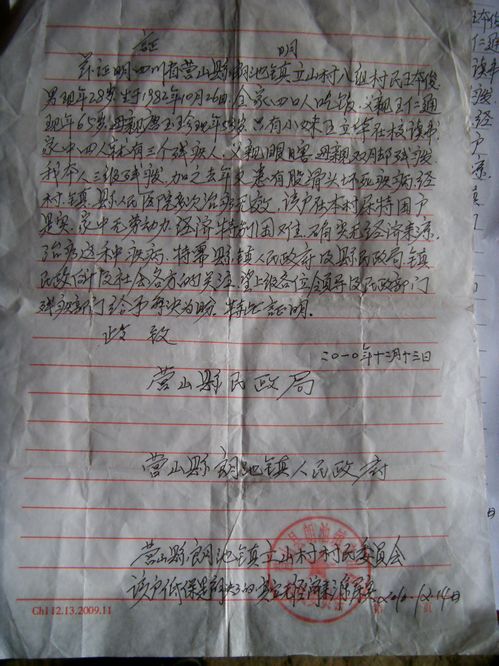 证明
兹证明四川省营山县朗池镇立山村八组村民王本俊
男现年28岁,生于1982年10月26日,全家四口人吃饭,父亲王仁通
现年65岁,母亲 玉珍现年58岁,只有小妹王立华在校读书
家中四人就有三个残疾人,父亲眼瞎,母亲 残疾
我本人三级残疾,加之去年又患有股骨头坏死疾病,经
村、镇、县人民医院多次治疗无效,该户在本村属特困户
是实,家中无劳动力,经济特别困难,确实无经济来源
治病这种疾病,特 县镇人民政府及县民政局、镇
民政 及社会各方的关注,望上级各位领导及民政部门
残联部门给予解决为盼。特此证明。
此致
二〇一〇年十二月十三日
营山县民政局
营山县朗池镇人民政府
营山县朗池镇立山村村民委员会
该户低保是 无经济来源属实 2010.12.14日
Ch112.13.2009.11